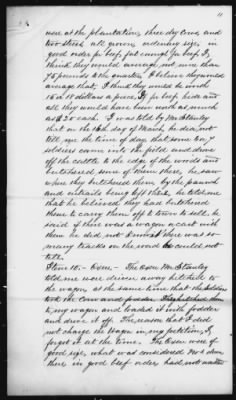 11
were at the plantation, three dry cows, and
two steers all grown, ordinary size, in
good order for beef, fat enough for beef I
think they would average, not more than
75 pounds to the quarter. I believe they would
average that, I think they would be worth
15 or 18 dollars a piece, if for beef hides and
all they would have been worth as much
as $20 each. I was told by Mr Stanley
that on the 16th day of March, he dear not
tell me the time of day, that some
soldiers came into the field and drove
off the cattle to the edge of the woods and
butchered some of them there, he saw
where they butchered them by the paunch
and entrails being left there, he told me
that he believed they had butchered
them to carry them off to town to sell, he
said if there was a wagon or cart with
them he did not know there was so
many tracks on the road he could not
tell.
Item 10 - Oxen - The oxen Mr Stanley
told me were driven away hitched to
the wagon, at the same time that the soldiers
took the corn and fodder. They hitched them
to my wagon and loaded it with fodder
and drove it off. The reason that I did
not charge the wagon in my petition, I
forgot it at the time. The oxen were of
good size, what was considered No 1 oxen
there in good beef order, had not